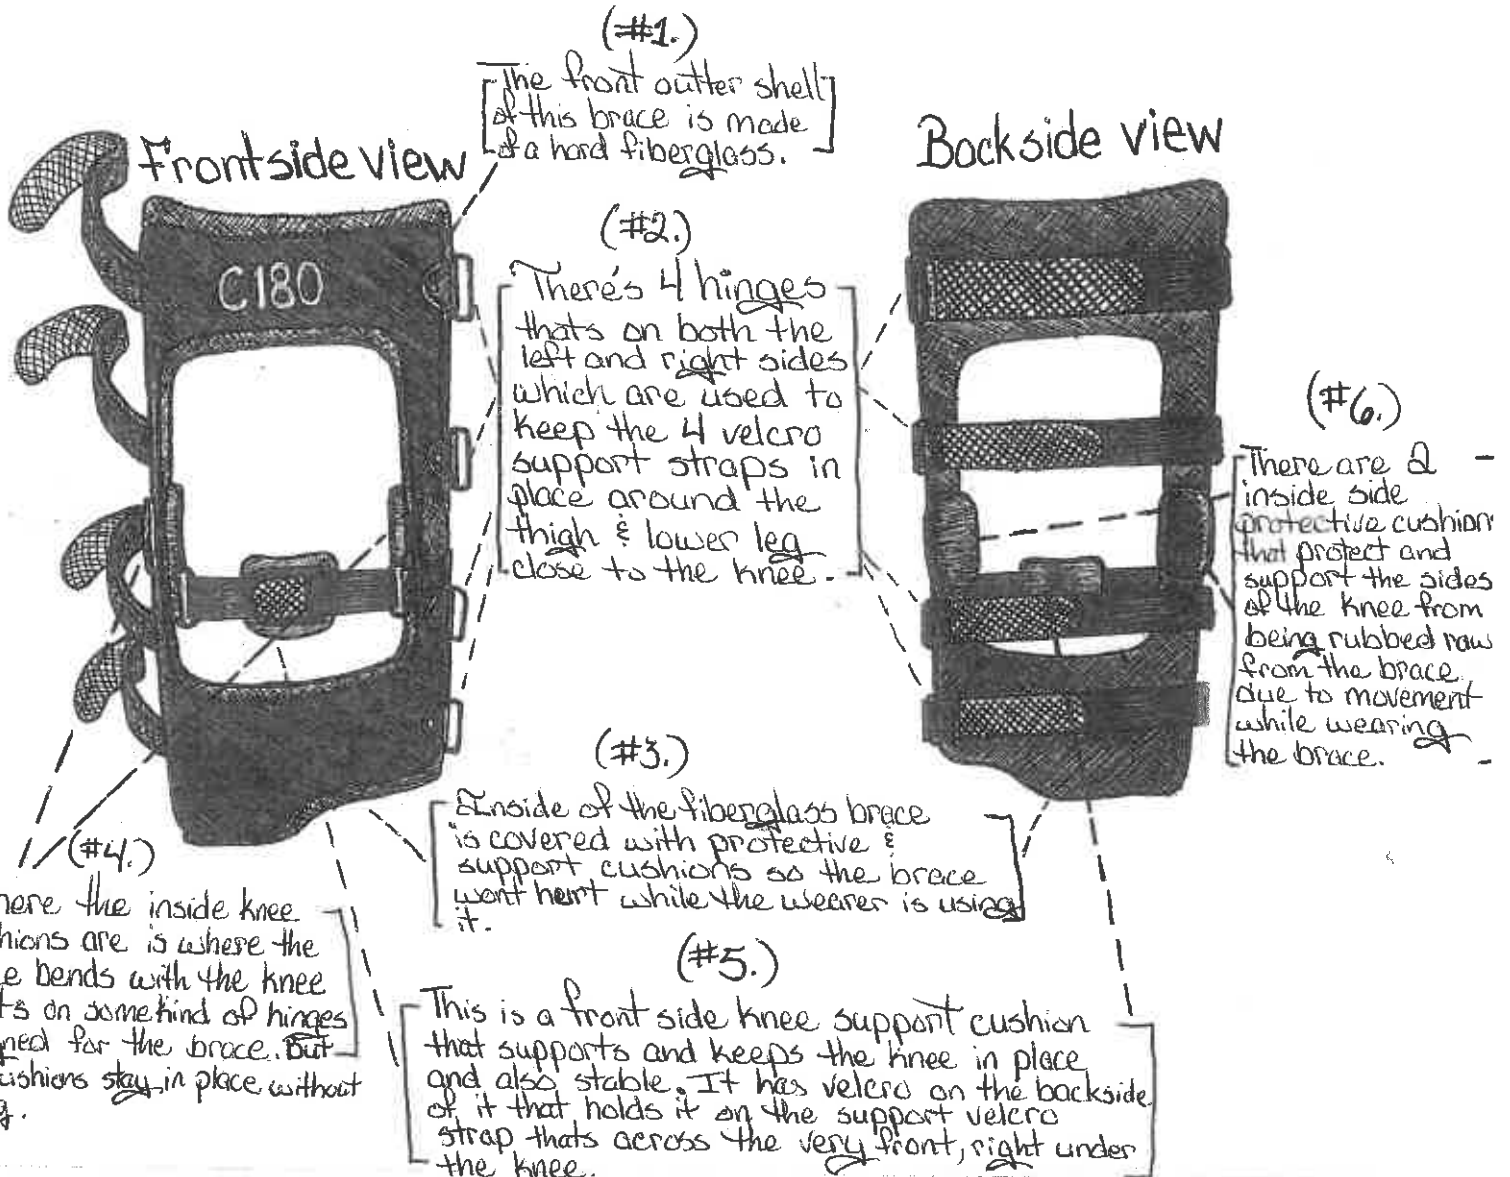 (#1.)
The front outter shell
of this brace is made
of a hard fiberglass.
Frontside view
Backside view
C180
(#2.)
There's 4 hinges
thats on both the
left and right sides
which are used to
keep the 4 velcro
support straps in
place around the
thigh & lower leg
close to the knee.
(#6.)
There are 2
inside side
protective cushion
that protect and
support the sides
of the knee from
being rubbed raw
from the brace
due to movement
while wearing
the brace.
(#3.)
Inside of the fiberglass brace
is covered with protective &
support cushions so the brace
wont hurt while the wearer is using
it.
(#4.)
here the inside knee
hions are is where the
e bends with the knee
ts on somekind of hinges
ned for the brace. But
ushions stay in place without
g.
(#5.)
This is a front side knee support cushion
that supports and keeps the knee in place
and also stable. It has velcro on the backside
of it that holds it on the support velcro
strap thats across the very front, right under
the knee.